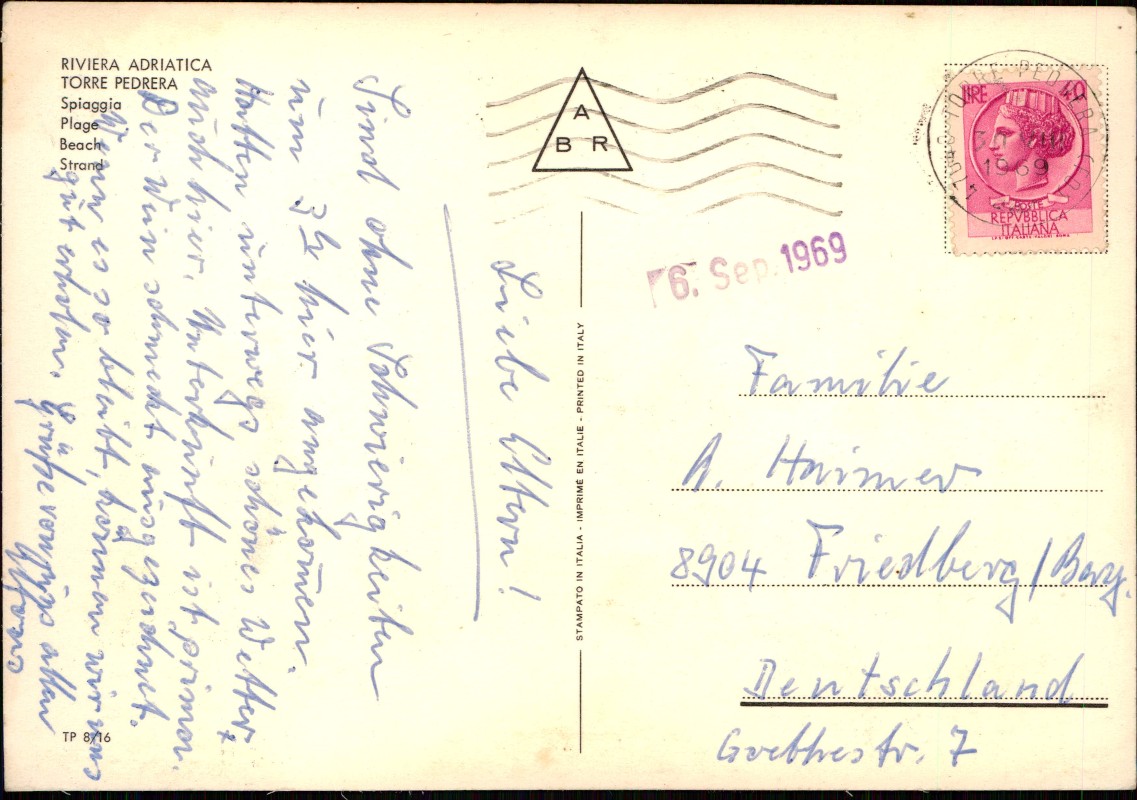 RIVIERA ADRIATICA
TORRE PEDRERA
Spiaggia
Plage
Beach
Strand
Liebe Eltern!
Sind ohne Schwierigkeiten
um 3½ hier angekom̄en.
Hatten unterwegs schönes Wetter,
auch hier. Unterkunft ist prima.
Der Wein schmeckt ausgezeichnet.
Wenn es so bleibt, können wir uns
gut erholen. Grüße von uns allen
TP 8/16
STAMPATO IN ITALIA - IMPRIMÉ EN ITALIE - PRINTED IN ITALY
A
B R
LIRE 40
POSTE
REPVBBLICA
ITALIANA
TORRE PEDRERA
1969
6. Sep. 1969
Familie
A. Haimer
8904 Friedberg/Bay.
Deutschland
Goethestr. 7